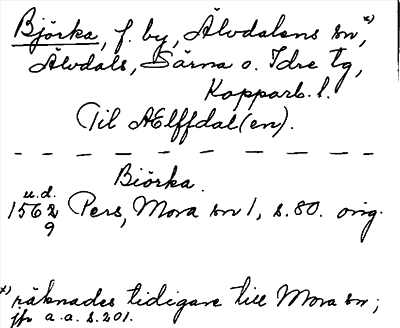 Björka, f. by, Älvdalens sn,*)
Älvdals, Särna o. Idre tg,
Kopparb. l.
Till AElffdal(en).
Biörka.
u.d.
1562 Pers, Mora sn 1, s. 80. orig.
9
*) räknades tidigare till Mora sn;
jfr a.a. s. 201.